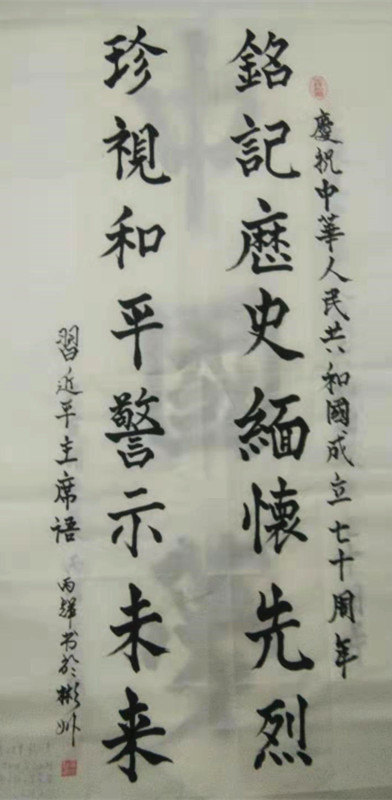 慶祝中華人民共和國成立七十周年
銘記歷史緬懷先烈
珍視和平警示未来
習近平主席語
丙輝书於彬州